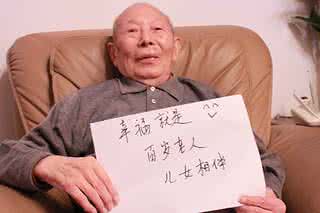 幸福就是
百岁老人
儿女相伴